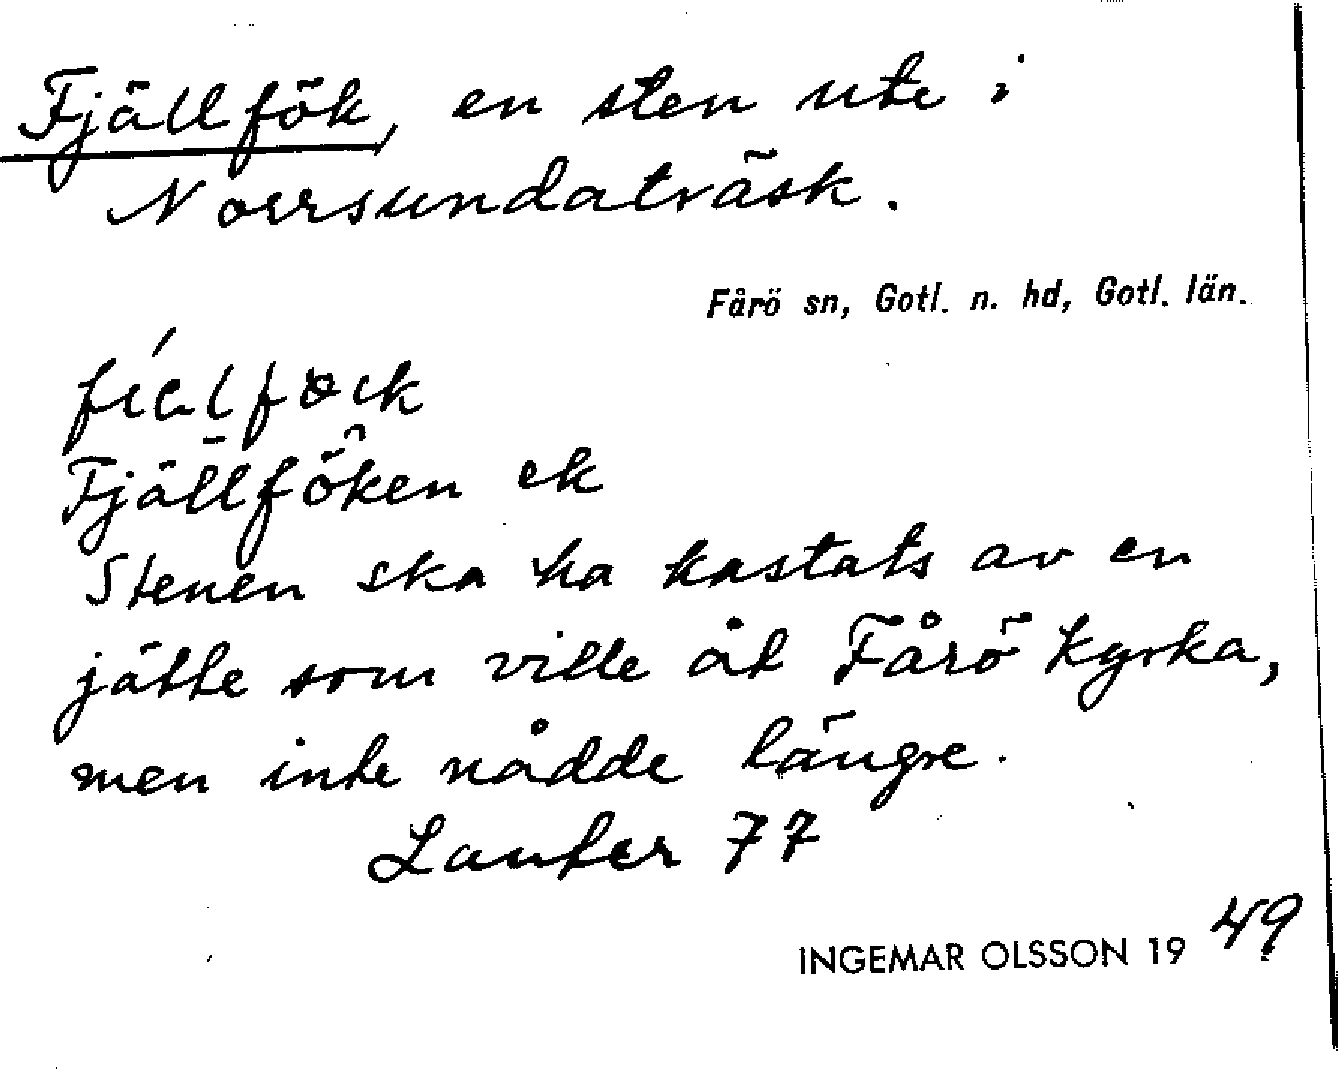 Fjällfök, en sten ute i
Norrsundaträsk.
Fårö sn, Gotl. n. hd, Gotl. län.
Fjällföken ek
Stenen ska ha kastats av en
jätte som ville åt Fårö kyrka,
men inte nådde längre.
Lauter 77
INGEMAR OLSSON 1949